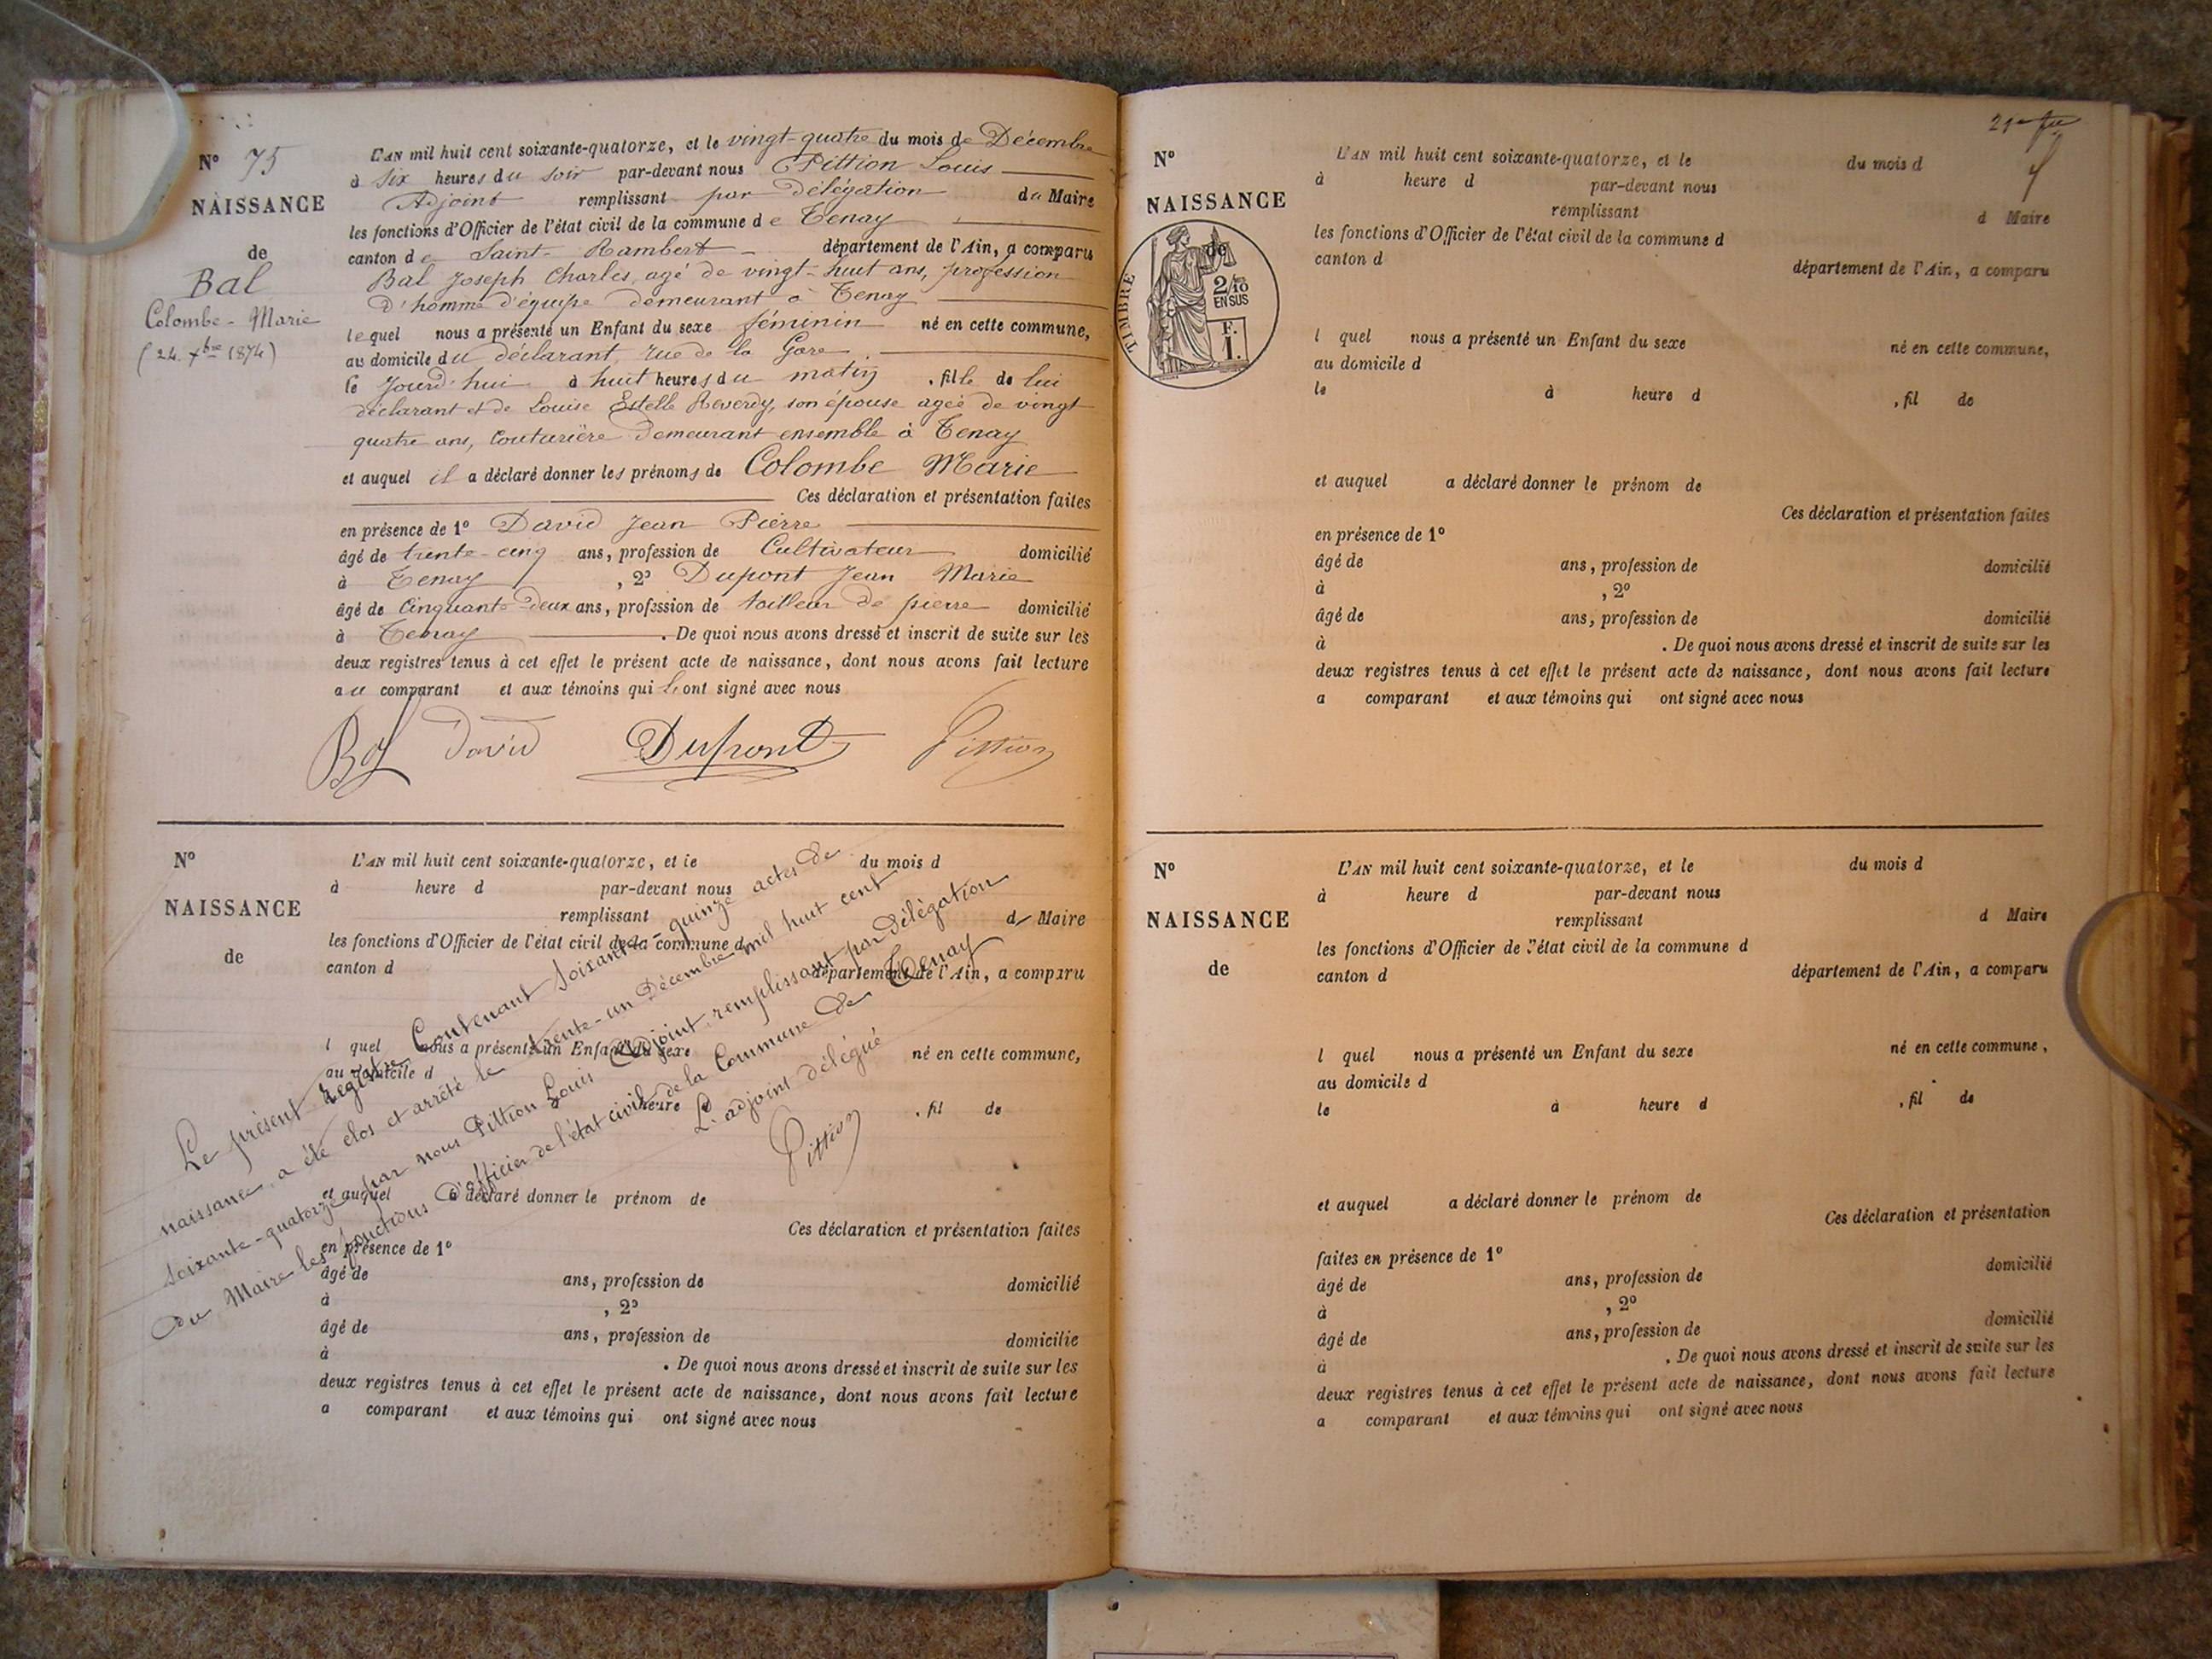 N° 75
NAISSANCE
de
Bal
Colombe-Marie
(24 Xbre 1874)
L'AN mil huit cent soixante-quatorze, et le vingt-quatre du mois de Décembre
à six heures du soir par-devant nous Pittion Louis
Adjoint remplissant par délégation du Maire
les fonctions d'Officier de l'état civil de la commune de Tenay
canton de Saint-Rambert département de l'Ain, a comparu
Bal Joseph Charles, agé de vingt-huit ans, profession
d'homme d'équipe demeurant à Tenay
lequel nous a présenté un Enfant du sexe féminin né en cette commune,
au domicile du déclarant, rue de la Gare
le jourd'hui à huit heures du matin , fille de lui
déclarant et de Louise Estelle Reverdy, son épouse agée de vingt
quatre ans, couturière demeurant ensemble à Tenay
et auquel il a déclaré donner les prénoms de Colombe Marie
Ces déclaration et présentation faites
en présence de 1° David Jean Pierre
âgé de trente-cinq ans, profession de Cultivateur domicilié
à Tenay , 2° Dupont Jean Marie
âgé de Cinquante-deux ans, profession de tailleur de pierre domicilié
à Tenay . De quoi nous avons dressé et inscrit de suite sur les
deux registres tenus à cet effet le présent acte de naissance, dont nous avons fait lecture
au comparant et aux témoins qui ont signé avec nous
Bal David Dupont Pittion
N°
NAISSANCE
de
L'AN mil huit cent soixante-quatorze, et le du mois d
à heure d par-devant nous
remplissant d Maire
les fonctions d'Officier de l'état civil de la commune d
canton d département de l'Ain, a comparu
l quel nous a présenté un Enfant du sexe né en cette commune,
au domicile d
heure d , fil de
et auquel a déclaré donner le prénom de
Ces déclaration et présentation faites
en présence de 1°
âgé de ans, profession de domicilié
à , 2°
âgé de ans, profession de domicilié
à . De quoi nous avons dressé et inscrit de suite sur les
deux registres tenus à cet effet le présent acte de naissance, dont nous avons fait lecture
a comparant et aux témoins qui ont signé avec nous
Le présent Registre Contenant soixante-quinze actes de
naissance, a été clos et arrêté le trente-un Décembre mil huit cent
soixante-quatorze par nous Pittion Louis Adjoint, remplissant par délégation
du Maire les fonctions d'officier de l'état civil de la Commune de Tenay
L'adjoint délégué
Pittion
N°
NAISSANCE
de
TIMBRE
2/10
EN SUS
F.
1.
L'AN mil huit cent soixante-quatorze, et le du mois d
à heure d par-devant nous
remplissant d Maire
les fonctions d'Officier de l'état civil de la commune d
canton d département de l'Ain, a comparu
l quel nous a présenté un Enfant du sexe né en cette commune,
au domicile d
le à heure d , fil de
et auquel a déclaré donner le prénom de
Ces déclaration et présentation faites
en présence de 1°
âgé de ans, profession de domicilié
à , 2°
âgé de ans, profession de domicilié
à . De quoi nous avons dressé et inscrit de suite sur les
deux registres tenus à cet effet le présent acte de naissance, dont nous avons fait lecture
a comparant et aux témoins qui ont signé avec nous
N°
NAISSANCE
de
L'AN mil huit cent soixante-quatorze, et le du mois d
à heure d par-devant nous
remplissant d Maire
les fonctions d'Officier de l'état civil de la commune d
canton d département de l'Ain, a comparu
l quel nous a présenté un Enfant du sexe né en cette commune,
au domicile d
le à heure d , fil de
et auquel a déclaré donner le prénom de
Ces déclaration et présentation
faites en présence de 1°
âgé de ans, profession de domicilié
à , 2°
âgé de ans, profession de domicilié
à . De quoi nous avons dressé et inscrit de suite sur les
deux registres tenus à cet effet le présent acte de naissance, dont nous avons fait lecture
a comparant et aux témoins qui ont signé avec nous